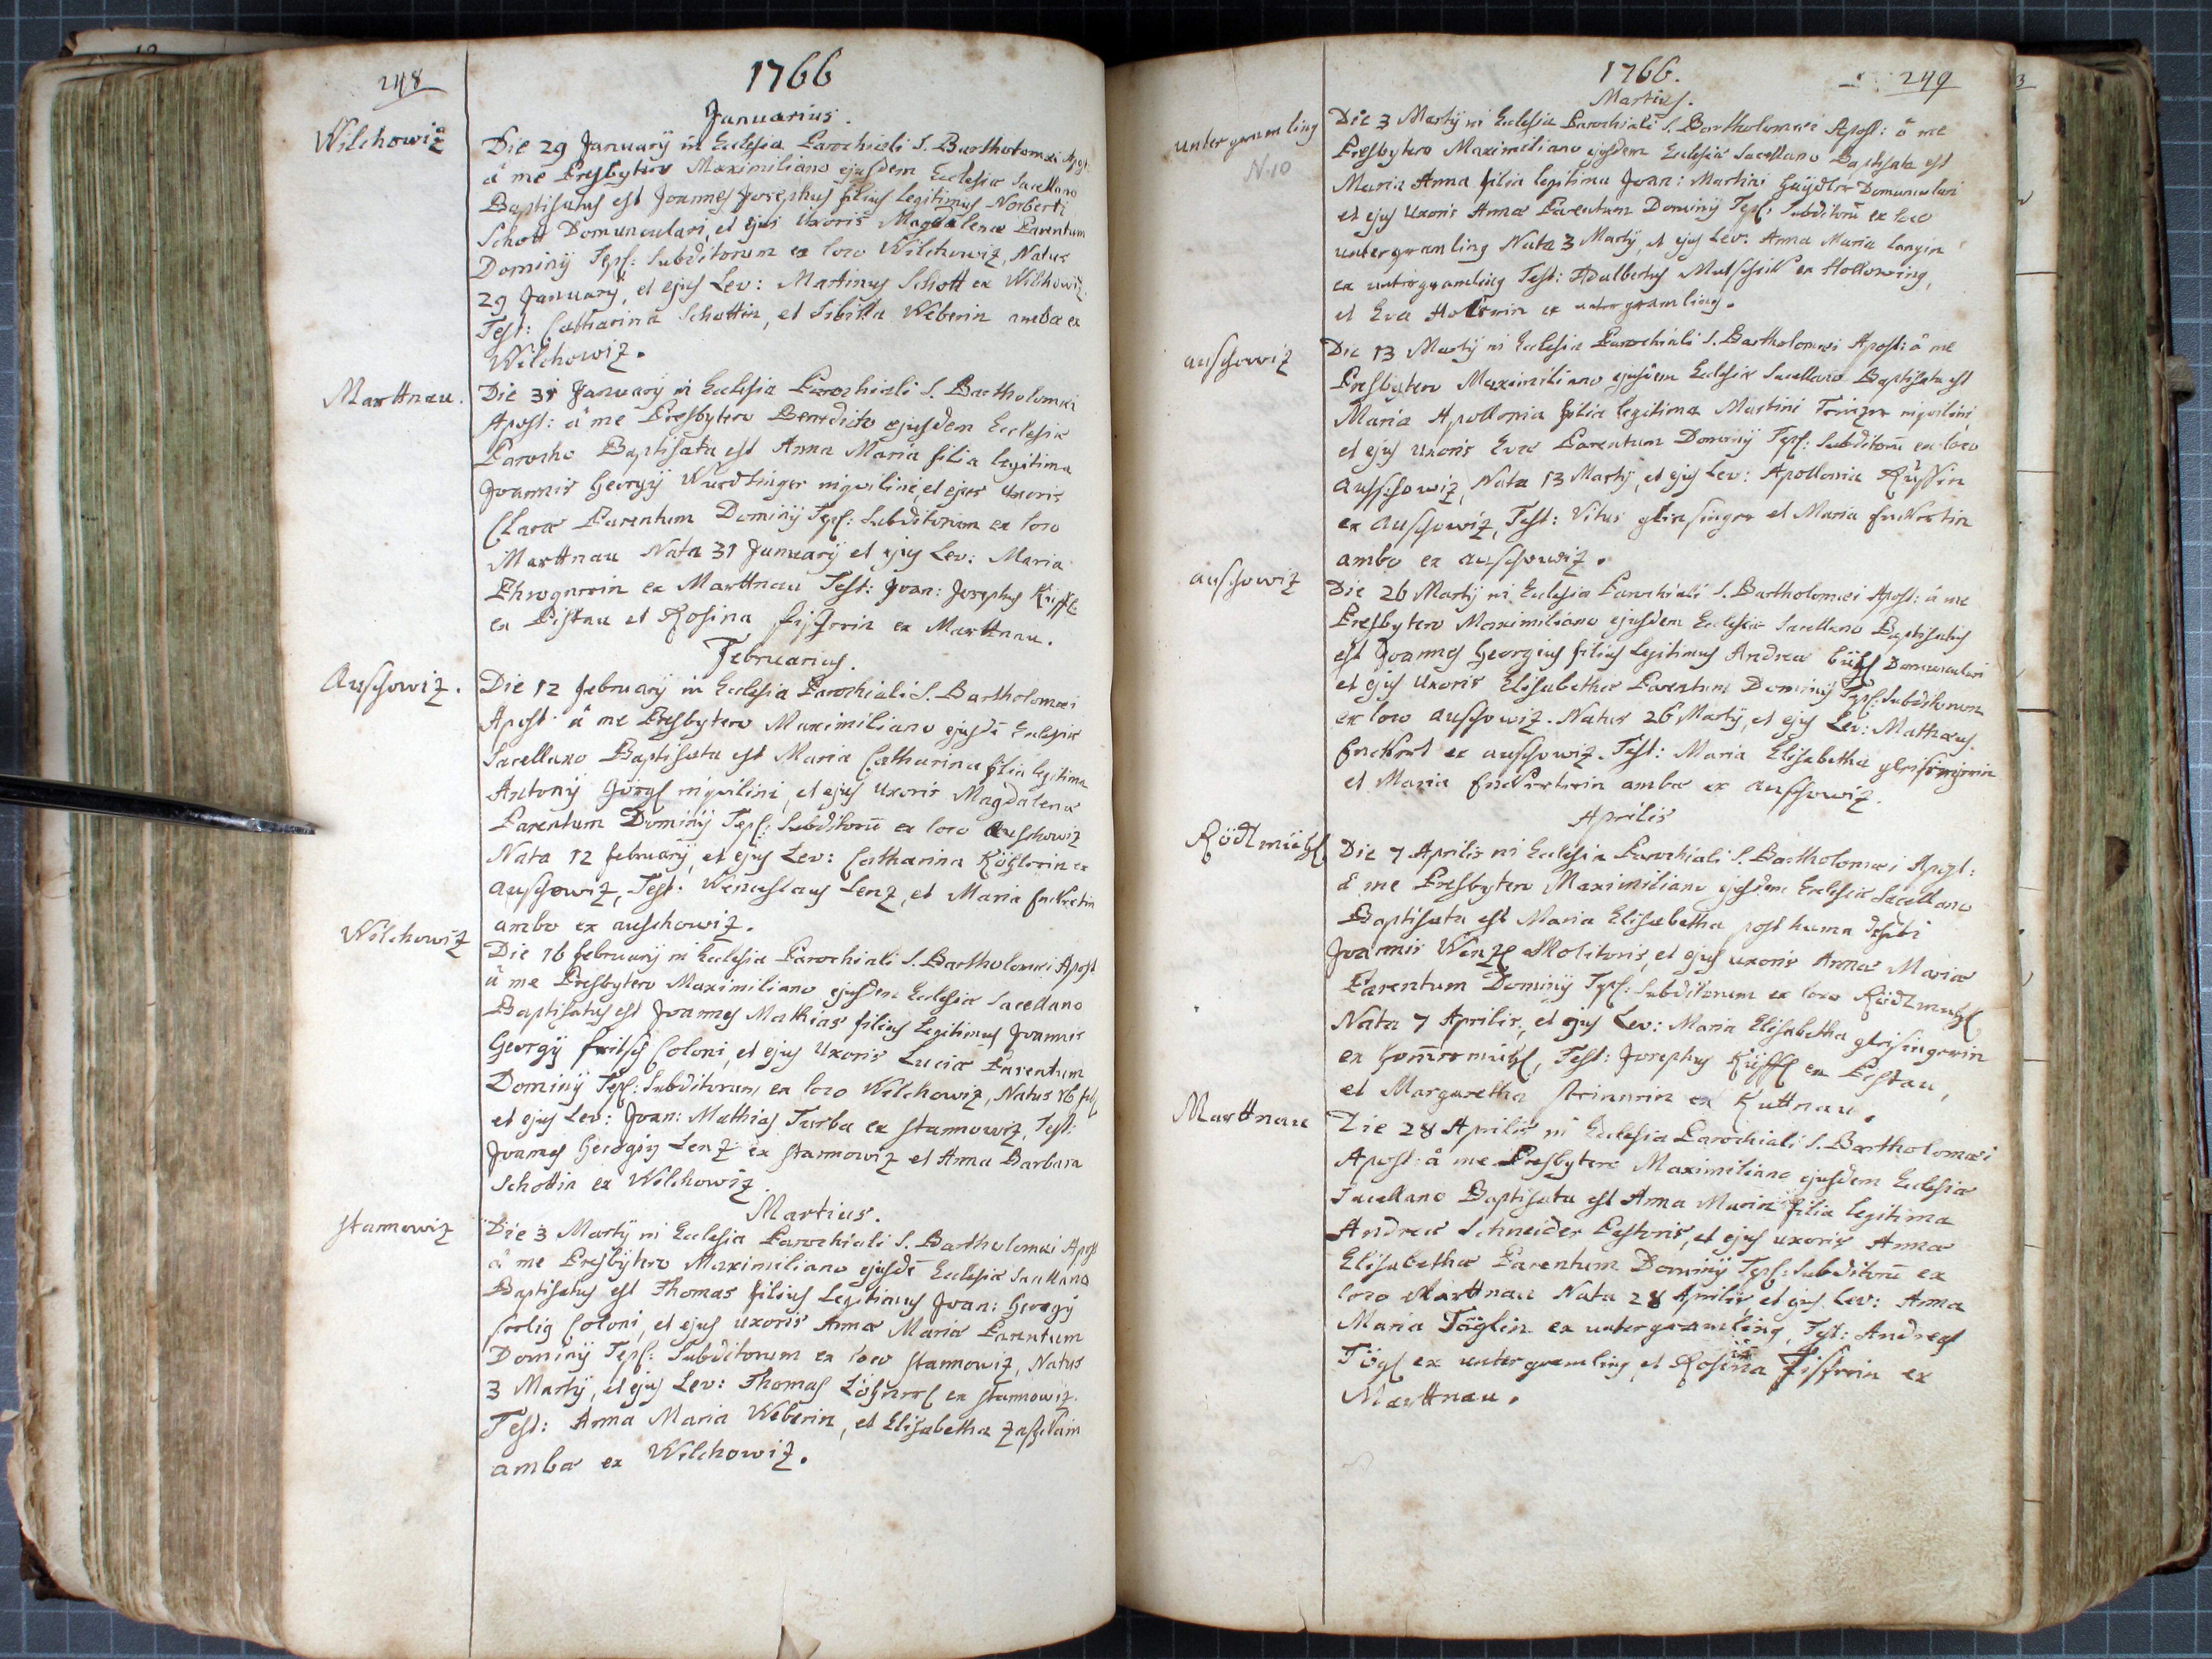 248
1766
Januarius.
Wilchowiz
Die 29 January in Ecclesia Parochiali S. Bartholomæi Apost:
â me Presbytero Maximiliano ejusdem Ecclesiæ Sacellano
Baptisatus est Joannes Josephus filius Legitimus Norberti
Schott Domuncularj, et ejus Uxoris Magdalenæ Parentum
Dominij Tepl: Subditorum ex loco Wilchowiz, Natus
29 January, et ejus Lev: Martinus Schott ex Wilchowiz.
Test: Catharina Schottin, et Sibilla Weberin ambæ ex
Wilchowiz.
Marttnau.
Die 31 January in Ecclesia Parochiali S. Bartholomæi
Apost: â me Presbytero Benedicto ejusdem Ecclesiæ
Parocho Baptisata est Anna Maria filia legitima
Joannis Georgij Wurdtinger inquilini, et ejus Uxoris
Claræ Parentum Dominij Tepl: Subditorum ex loco
Marttnau Nata 31 January et ejus Lev: Maria
ex Marttnau Test: Joan: Josephus
ex Pistau et Rosina fischerin ex Marttnau.
Februarius.
Auschowiz.
Die 12 february in Ecclesia Parochiali S. Bartholomæi
Apost: â me Presbytero Maximiliano ejusdē Ecclesiæ
Sacellano Baptisata est Maria Catharina filia legitima
Antonij inquilini, et ejus Uxoris Magdalenæ
Parentum Dominij Tepl: Subditorū ex loco Auschowiz
Nata 12 february, et ejus Lev: Catharina Köhlerin ex
auschowiz, Test: Wenceslaus Lenz, et Maria
ambo ex auschowiz.
Wilchowiz
Die 16 february in Ecclesia Parochiali S. Bartholomæi Apost
â me Presbytero Maximiliano ejusdem Ecclesiæ Sacellano
Baptisatus est Joannes Mathias filius Legitimus Joannis
Georgij fritsch Coloni, et ejus Uxoris Luciæ Parentum
Dominij Tepl: Subditorum, ex loco Wilchowiz, Natus 16 feb
et ejus Lev: Joan: Mathias Turba ex stannowiz, Test:
Joannes Georgij Lenz ex stannowiz et Anna Barbara
Schottin ex Wilchowiz.
Martius.
stannowiz
Die 3 Martij in Ecclesia Parochiali S. Bartholomæi Apost
â me Presbytero Maximiliano ejusdē Ecclesiæ Sacellano
Baptisatus est Thomas filius Legitimus Joan: Georgij
Coloni, et ejus uxoris Annæ Mariæ Parentum
Dominij Tepl: Subditorum ex loco stannowiz, Natus
3 Martij, et ejus Lev: Thomas ex stannowiz.
Test: Anna Maria Weberin, et Elisabetha
ambæ ex Wilchowiz.
249
1766.
Martius.
untergramling
N. 10
Die 3 Martij in Ecclesia Parochiali S. Bartholomæi Apost: â me
Presbytero Maximiliano ejusdem Ecclesiæ Sacellano Baptisata est
Maria Anna filia legitima Joan: Martini Domuncularj
et ejus Uxoris Annæ Parentum Dominij Tepl: Subditorū ex loco
untergramling Nata 3 Martij, et ejus Lev: Anna Maria langin
ex untergramling Test: Adalbertus Mutschick ex Hollowing,
et Eva ex untergramling.
auschowiz
Die 13 Martij in Ecclesia Parochiali S. Bartholomæi Apost: â me
Presbytero Maximiliano ejusdem Ecclesiæ Sacellano Baptisata est
Maria Apollonia filia legitima Martini inquilini
et ejus uxoris Evæ Parentum Dominij Tepl: Subditorū ex loco
auschowiz, Nata 13 Martij, et ejus Lev: Apollonia
ex auschowiz, Test: Vitus et Maria
ambo ex auschowiz.
auschowiz
Die 26 Martij in Ecclesia Parochiali S. Bartholomæi Apost: â me
Presbytero Maximiliano ejusdem Ecclesiæ Sacellano Baptisatus
est Joannes Georgius filius Legitimus Andreæ Domuncularj
et ejus Uxoris Elisabethæ Parentum Dominij Tepl: Subditorum
ex loco auschowiz. Natus 26 Martij, et ejus Lev: Mathæus
ex auschowiz. Test: Maria Elisabetha
et Maria ambæ ex auschowiz.
Aprilis
Rödlmühl
Die 7 Aprilis in Ecclesia Parochiali S. Bartholomæi Apost:
â me Presbytero Maximiliano ejusdem Ecclesiæ Sacellano
Baptisata est Maria Elisabetha posthuma
Joannis Wenzl Molitoris, et ejus uxoris Annæ Mariæ
Parentum Dominij Tepl: Subditorum ex loco Rödlmühl
Nata 7 Aprilis, et ejus Lev: Maria Elisabetha
ex Test: Josephus ex Pistau,
et Margaretha ex Kuttnau.
Marttnau
Die 28 Aprilis in Ecclesia Parochiali S. Bartholomæi
Apost: â me Presbytero Maximiliano ejusdem Ecclesiæ
Sacellano Baptisata est Anna Maria filia legitima
Andreæ Schneider Pistoris, et ejus uxoris Annæ
Elisabethæ Parentum Dominij Tepl: Subditorū ex
loco Marttnau Nata 28 Aprilis, et ejus Lev: Anna
Maria Töglin ex untergramling, Test: Andreas
Tögl ex untergramling, et Rosina Fischerin ex
Marttnau.